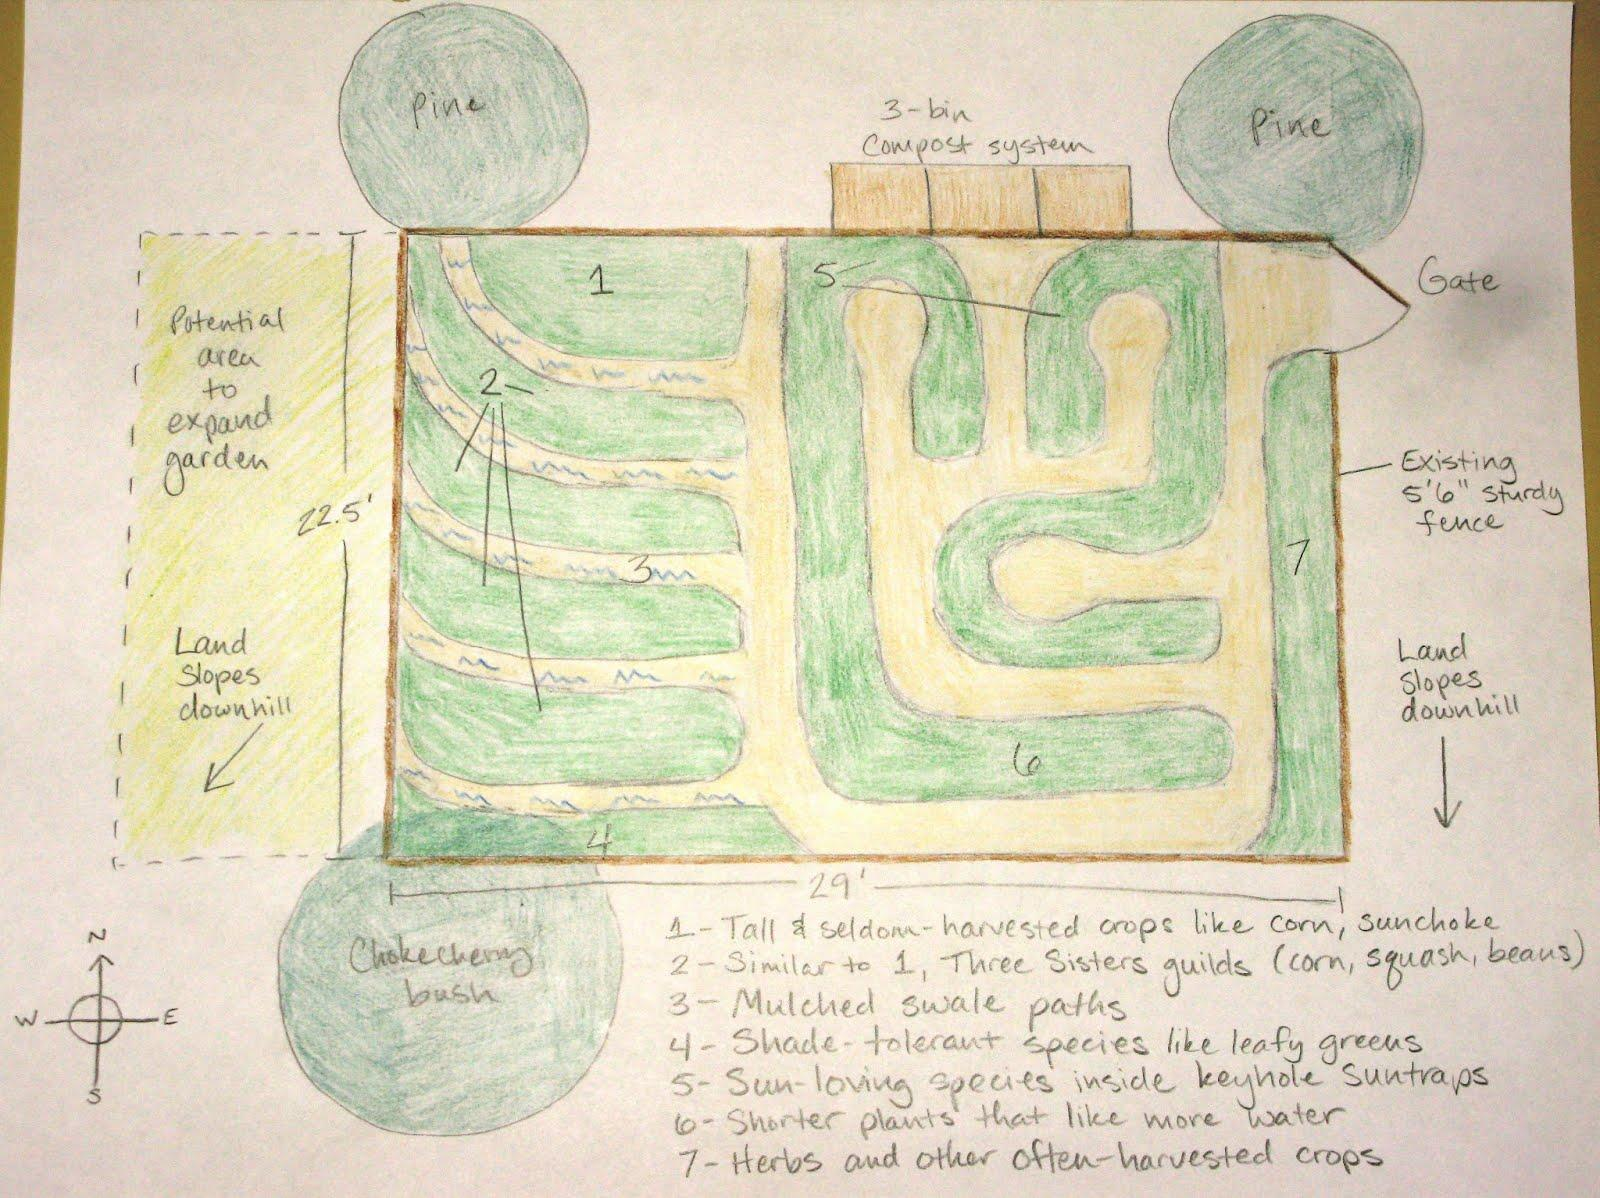 Pine
3-bin
compost system
Pine
Gate
1
5
2
Potential
area
to
expand
garden
22.5'
Existing
5'6" sturdy
fence
3
7
Land
slopes
downhill
Land
slopes
downhill
6
4
29'
Chokecherry
bush
N
W
E
S
1- Tall & seldom-harvested crops like corn, sunchoke
2- Similar to 1, Three Sisters guilds (corn, squash, beans)
3- Mulched swale paths
4- Shade-tolerant species like leafy greens
5- Sun-loving species inside keyhole suntraps
6- Shorter plants that like more water
7- Herbs and other often-harvested crops